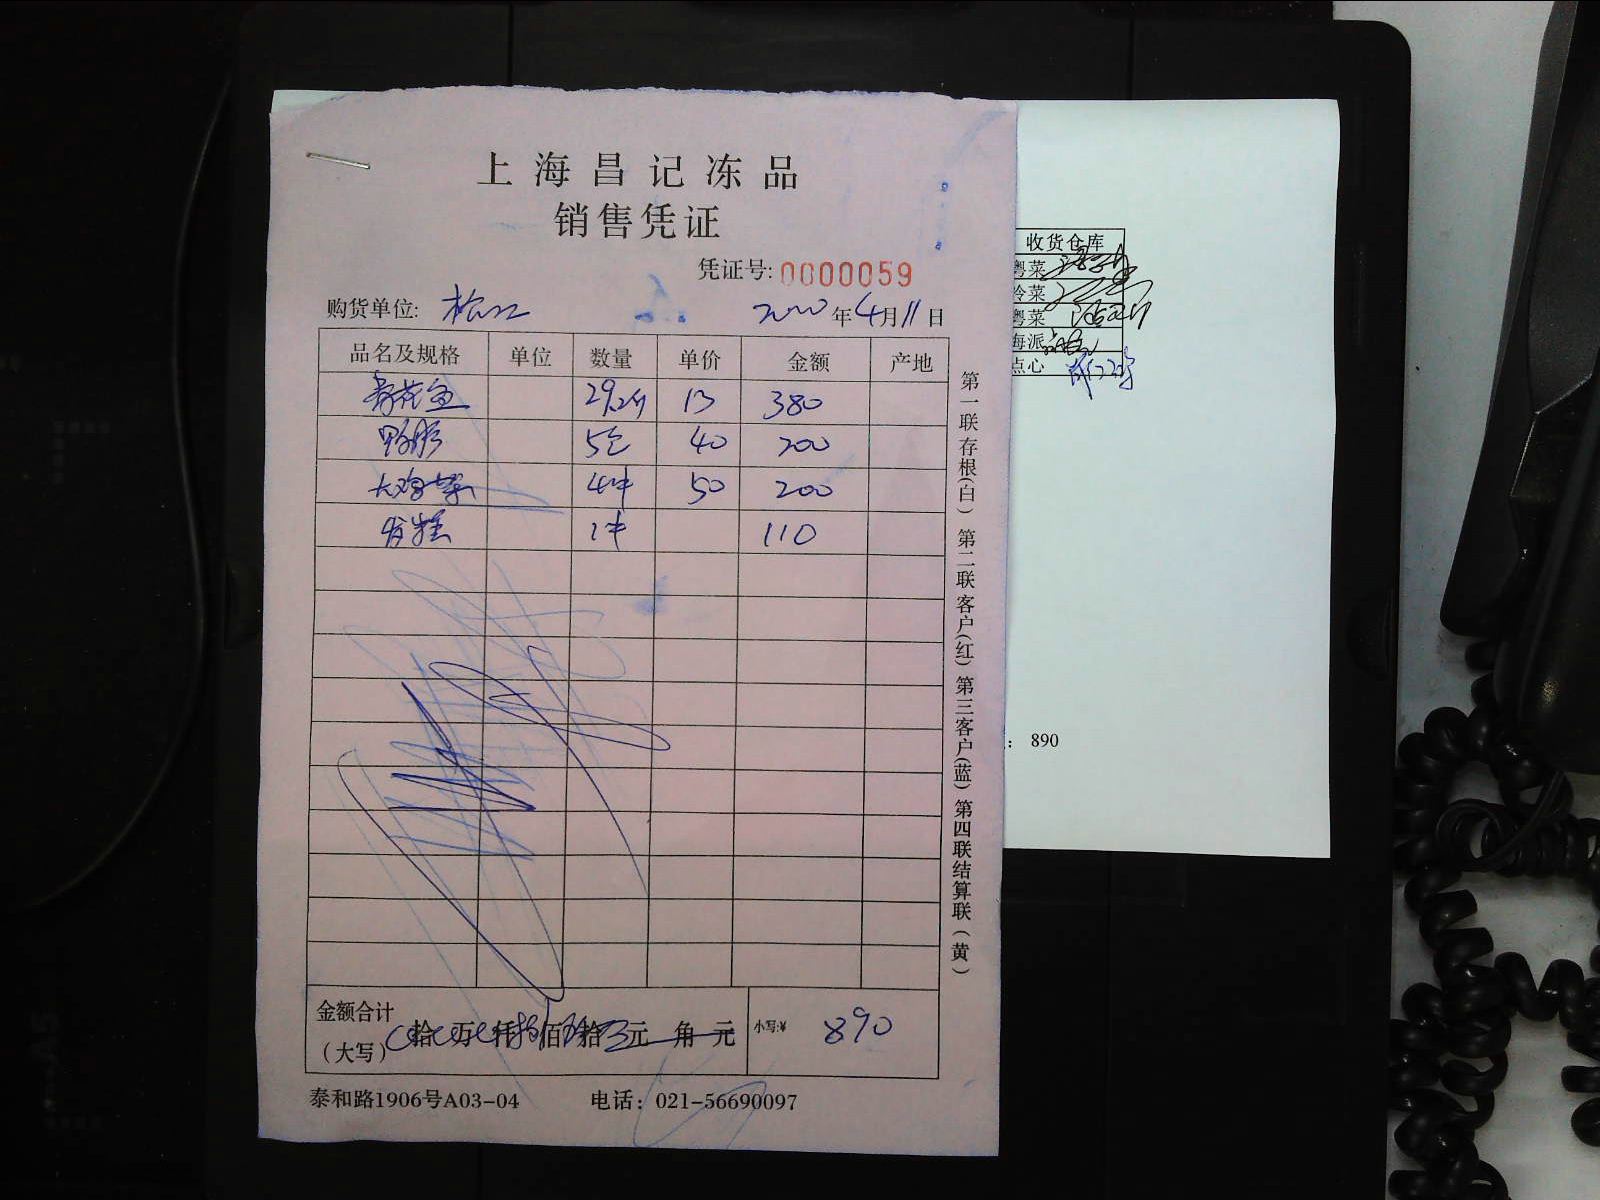 上海昌记冻品
销售凭证
凭证号: 0000059
购货单位: 松江 2020年4月11日
品名及规格 单位 数量 单价 金额 产地
29.2斤 13 380
5包 40 200
4件 50 200
1件 110
金额合计
(大写) 拾 万 仟 佰 拾 元 角 元 小写:¥ 890
泰和路1906号A03-04 电话: 021-56690097
第一联存根(白) 第二联客户(红) 第三客户(蓝) 第四联结算联(黄)
收货仓库
粤菜
冷菜
粤菜
海派
点心
: 890